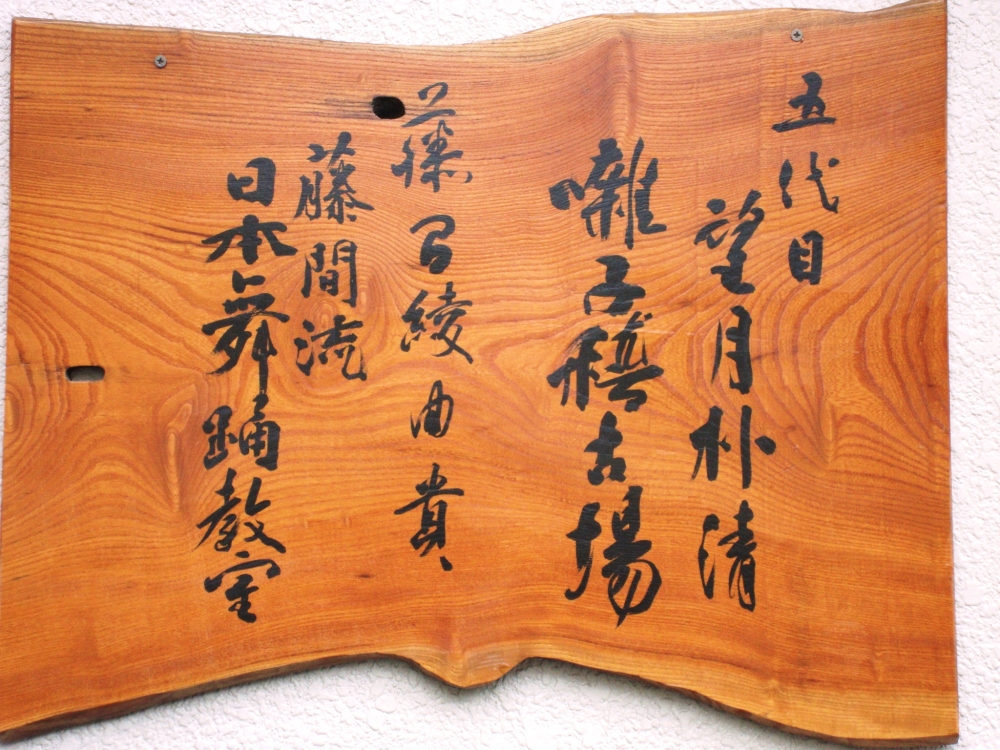 五代目
望月朴清
囃子稽古場
藤間綾由貴
藤間流
日本舞踊教室